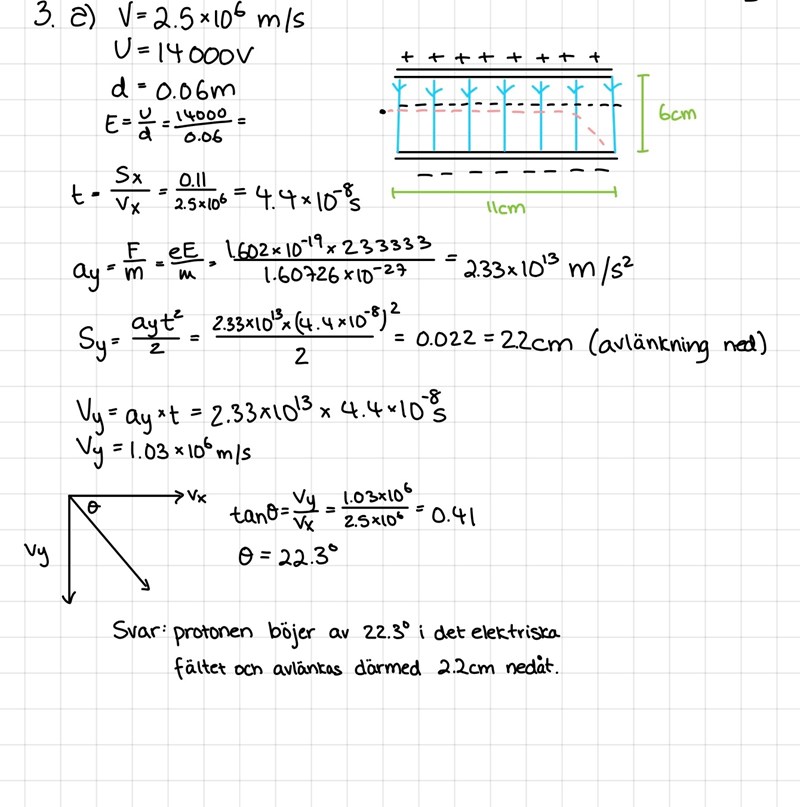 3. a) V = 2.5×10⁶ m/s
U = 14000V
d = 0.06m
E = U/d = 14000/0.06 =
+ + + + + + + +
6cm
– – – – – – –
11cm
t = Sx/Vx = 0.11/2.5×10⁶ = 4.4×10⁻⁸s
ay = F/m = eE/m = 1.602×10⁻¹⁹ × 233333/1.60726×10⁻²⁷ = 2.33×10¹³ m/s²
Sy = ayt²/2 = 2.33×10¹³×(4.4×10⁻⁸)²/2 = 0.022 = 2.2cm (avlänkning ned)
Vy = ay×t = 2.33×10¹³ × 4.4×10⁻⁸s
Vy = 1.03×10⁶ m/s
Vx
θ
Vy
tanθ = Vy/Vx = 1.03×10⁶/2.5×10⁶ = 0.41
θ = 22.3°
Svar: protonen böjer av 22.3° i det elektriska
fältet och avlänkas därmed 2.2cm nedåt.